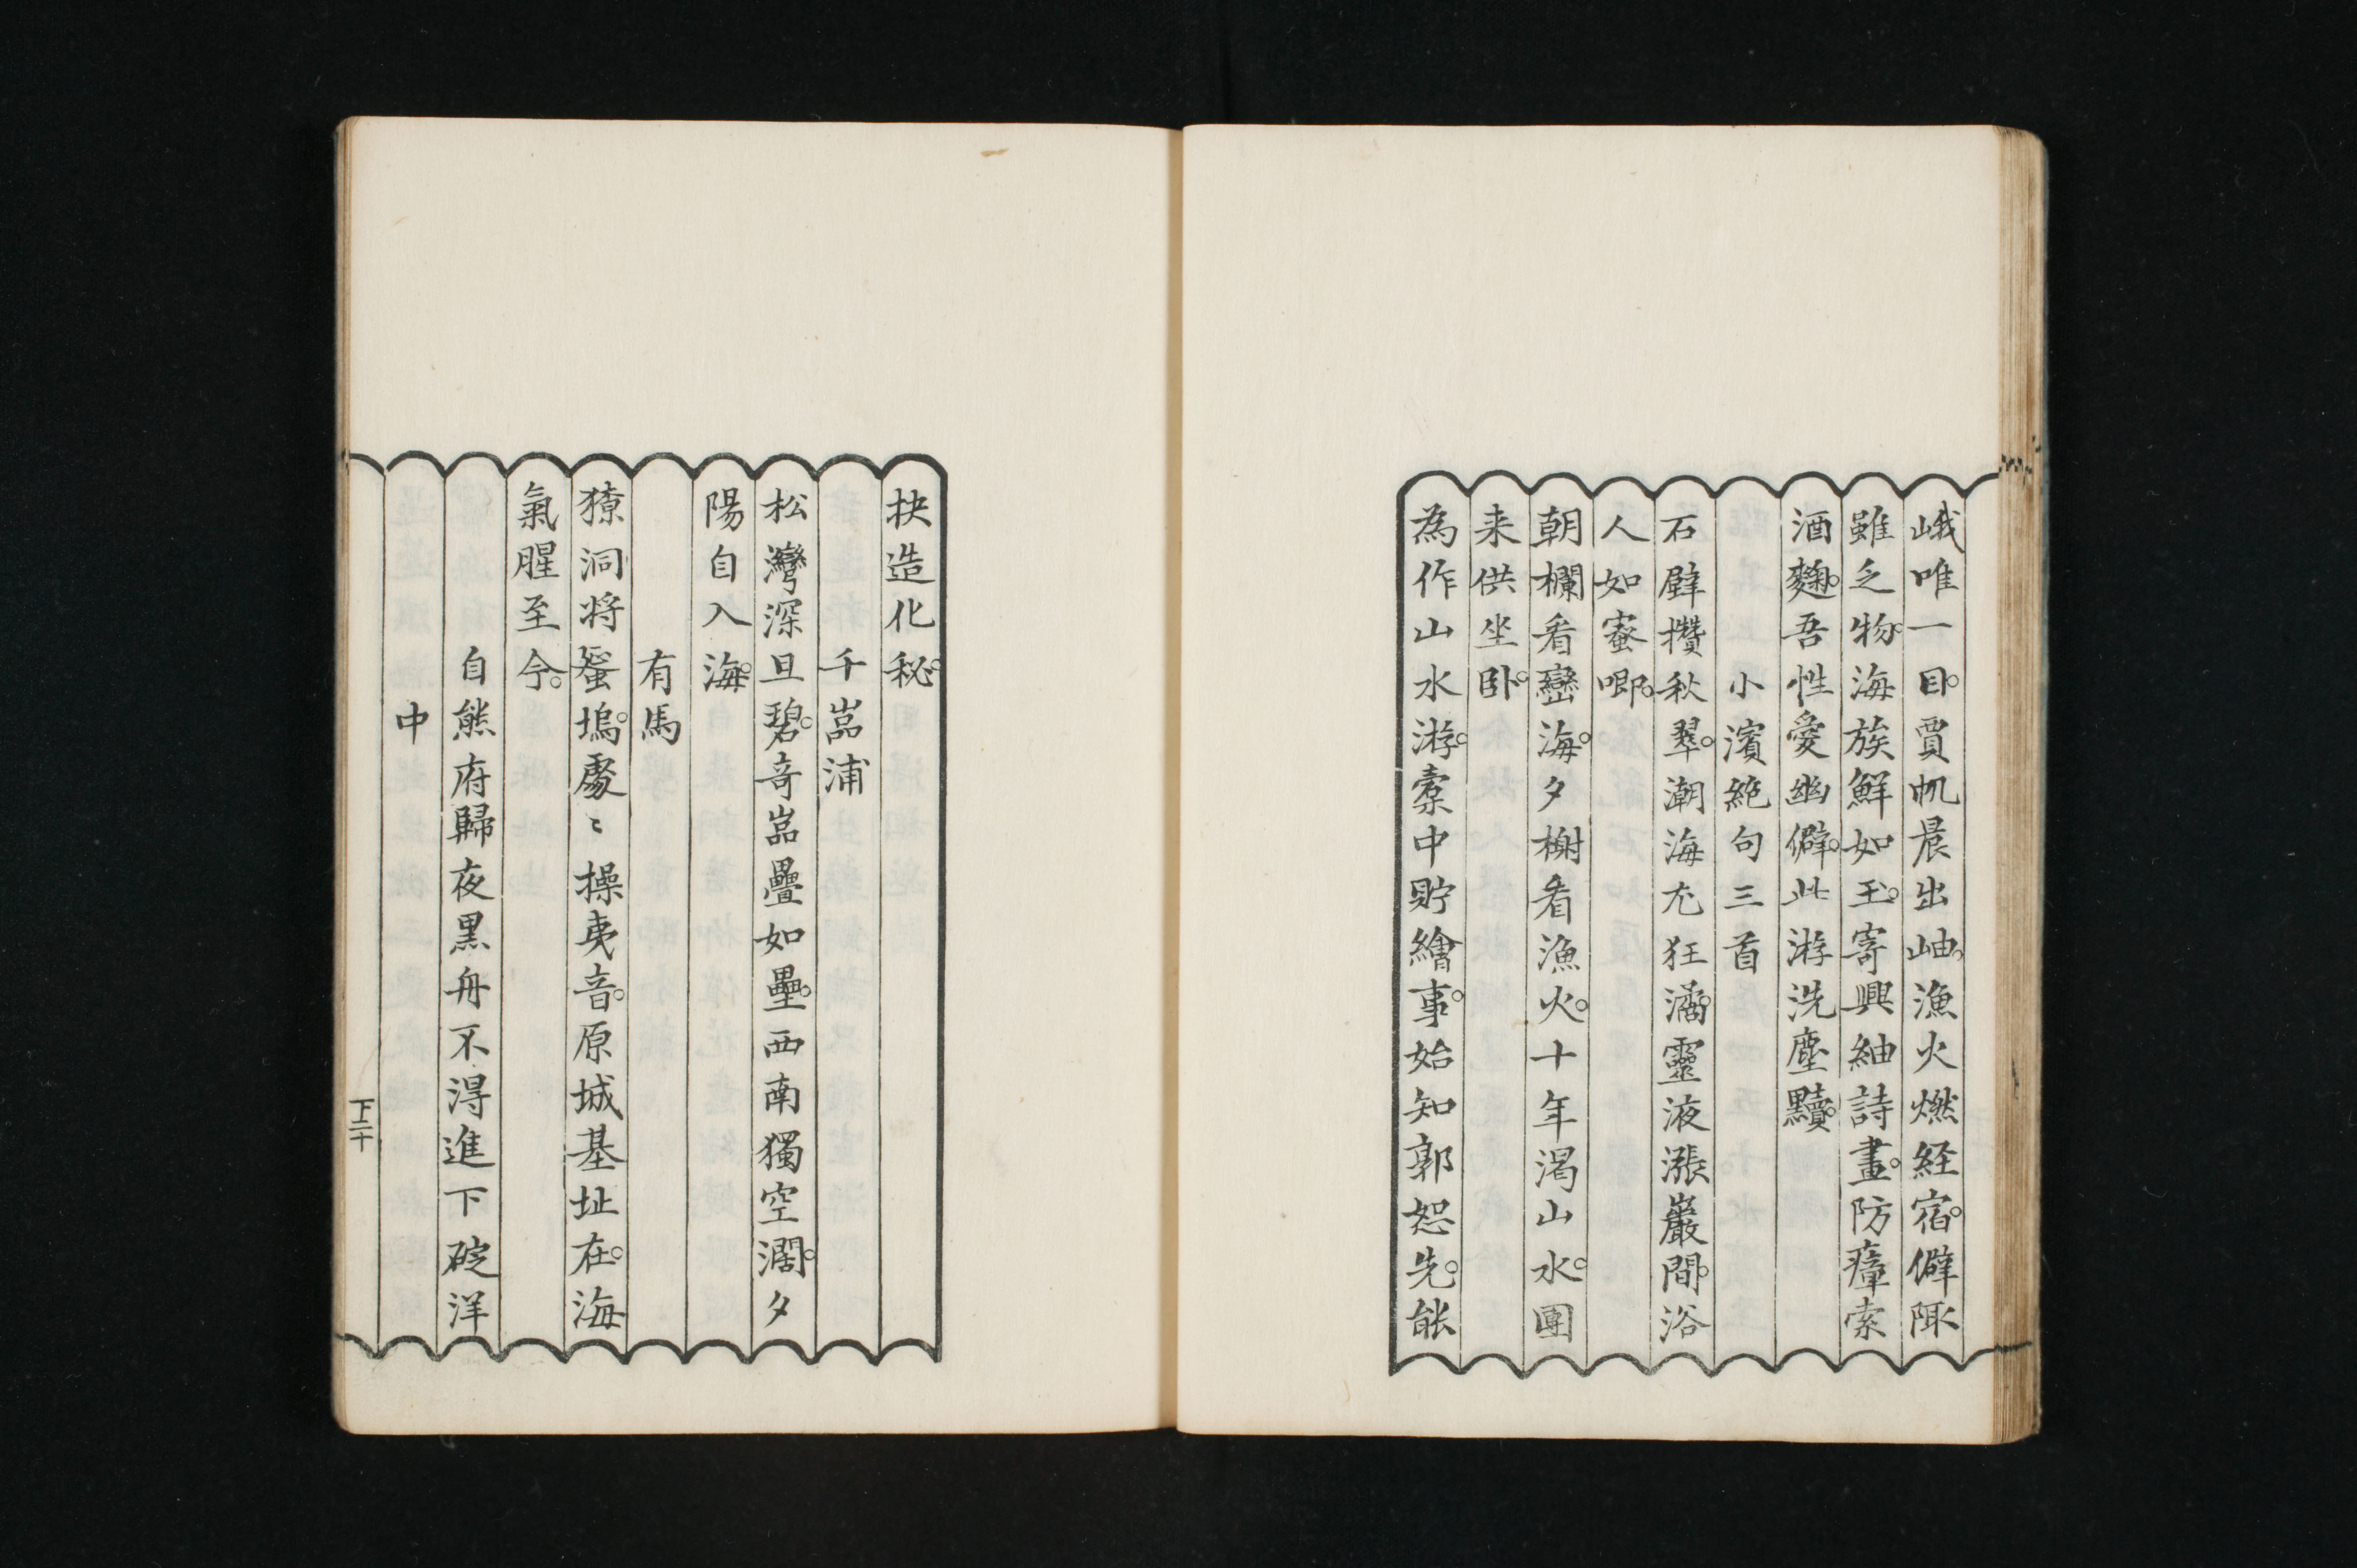 峨唯一目。賈帆晨出岫。漁火燃経宿。僻陬
雖乏物。海族鮮如玉。寄興紬詩畫。防瘴索
酒麴。吾性愛幽僻。此游洗塵黷。
小濱絶句三首
石壁攢秋翠。潮海尤狂潏。靈液漲巖間。浴
人如蜜唧。
朝欄看巒海。夕榭看漁火。十年渇山水。團
来供坐卧。
為作山水游。橐中貯繪事。始知郭恕先。能
抉造化秘。
千嵓浦
松灣深且碧。奇嵓疊如壘。西南獨空濶。夕
陽自入海。
有馬
獠洞将蜑塢。處〻操夷音。原城基址在。海
氣腥至今。
自熊府歸夜黒舟不得進下碇洋
中
下二十